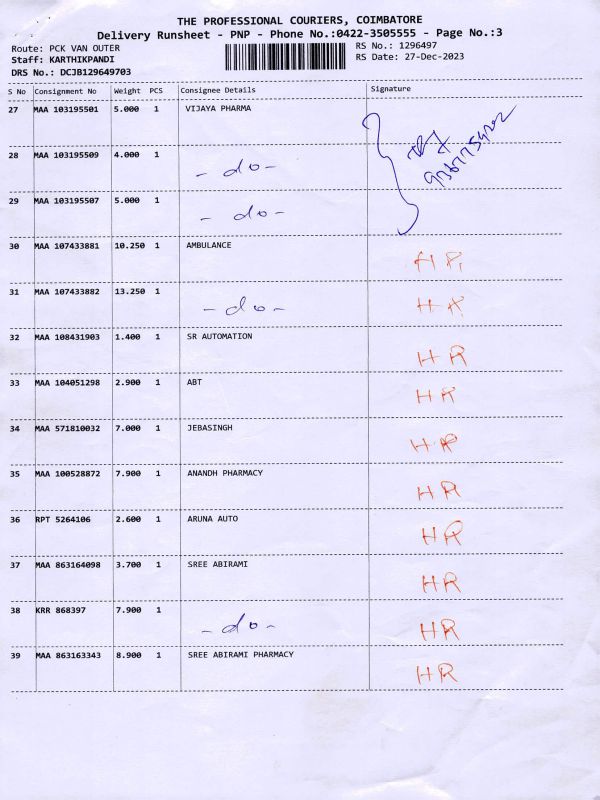 THE PROFESSIONAL COURIERS, COIMBATORE
Delivery Runsheet - PNP - Phone No.:0422-3505555 - Page No.:3
Route: PCK VAN OUTER RS No.: 1296497
Staff: KARTHIKPANDI RS Date: 27-Dec-2023
DRS No.: DCJB129649703
S No Consignment No Weight PCS Consignee Details Signature
27 MAA 103195501 5.000 1 VIJAYA PHARMA
28 MAA 103195509 4.000 1 - do -
29 MAA 103195507 5.000 1 - do -
30 MAA 107433881 10.250 1 AMBULANCE HR
31 MAA 107433882 13.250 1 - do - HR
32 MAA 108431903 1.400 1 SR AUTOMATION HR
33 MAA 104051298 2.900 1 ABT HR
34 MAA 571810032 7.000 1 JEBASINGH HR
35 MAA 100528872 7.900 1 ANANDH PHARMACY HR
36 RPT 5264106 2.600 1 ARUNA AUTO HR
37 MAA 863164098 3.700 1 SREE ABIRAMI HR
38 KRR 868397 7.900 1 - do - HR
39 MAA 863163343 8.900 1 SREE ABIRAMI PHARMACY HR